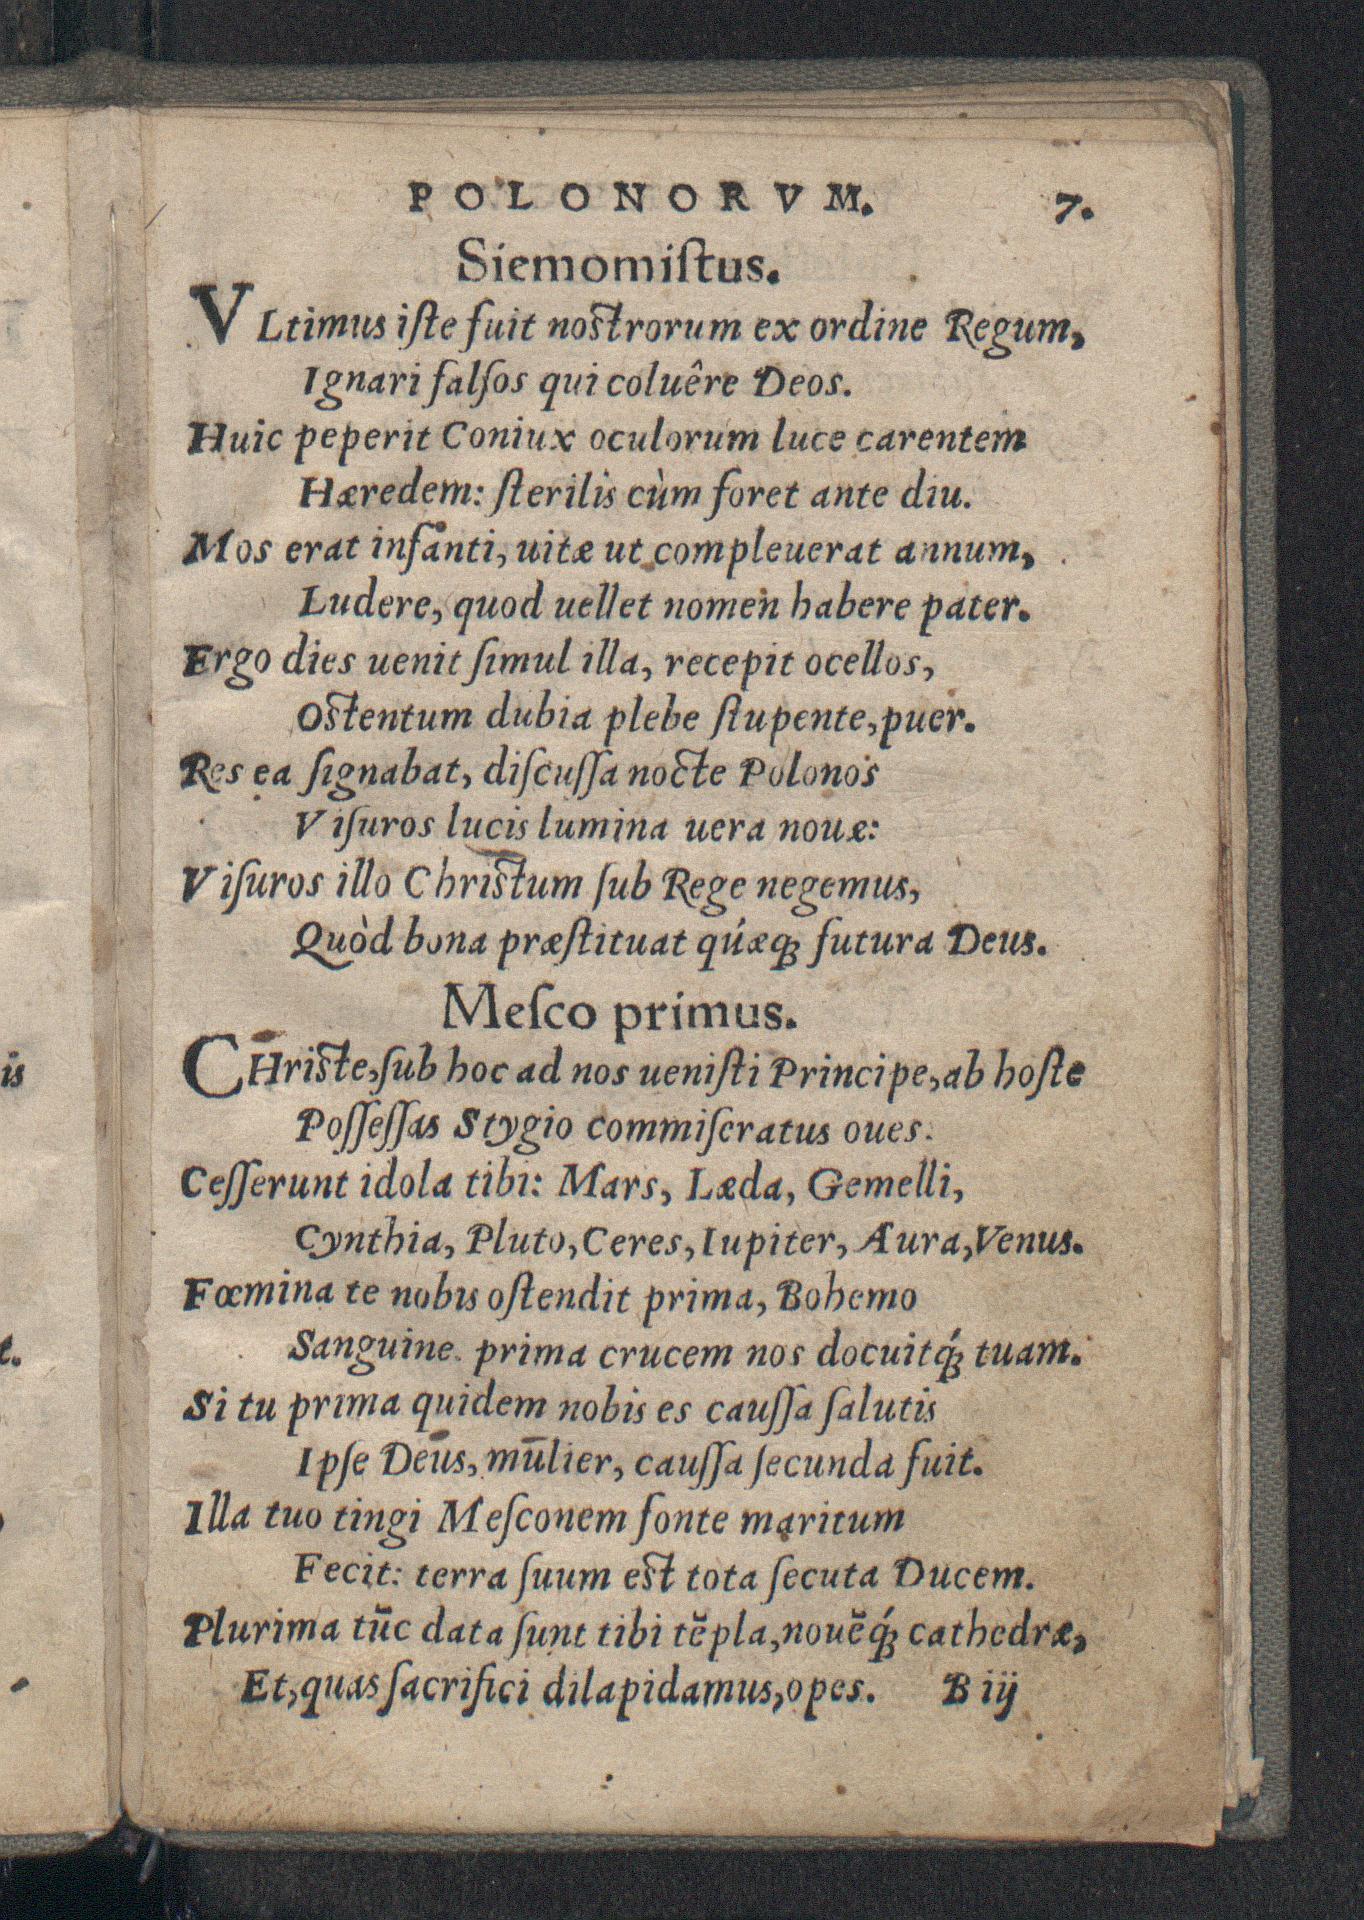 POLONORVM. 7.
Siemomiſtus.
VLtimus iſte fuit noſtrorum ex ordine Regum,
Ignari falſos qui coluêre Deos.
Huic peperit Coniux oculorum luce carentem
Hæredem: ſterilis cùm foret ante diu.
Mos erat infanti, uitæ ut compleuerat annum,
Ludere, quod uellet nomen habere pater.
Ergo dies uenit ſimul illa, recepit ocellos,
Oſtentum dubia plebe ſtupente, puer.
Res ea ſignabat, diſcuſſa nocte Polonos
Viſuros lucis lumina uera nouæ:
Viſuros illo Chriſtum ſub Rege negemus,
Quòd bona præſtituat quæq́; futura Deus.
Meſco primus.
CHriſte, ſub hoc ad nos ueniſti Principe, ab hoſte
Poſſeſſas Stygio commiſeratus oues.
Ceſſerunt idola tibi: Mars, Læda, Gemelli,
Cynthia, Pluto, Ceres, Iupiter, Aura, Venus.
Fœmina te nobis oſtendit prima, Bohemo
Sanguine. prima crucem nos docuitq́; tuam.
Si tu prima quidem nobis es cauſſa ſalutis
Ipſe Deus, mulier, cauſſa ſecunda fuit.
Illa tuo tingi Meſconem fonte maritum
Fecit: terra ſuum eſt tota ſecuta Ducem.
Plurima tũc data ſunt tibi tẽpla, nouẽq́; cathedræ,
Et, quas ſacrifici dilapidamus, opes. B iij
is
t.